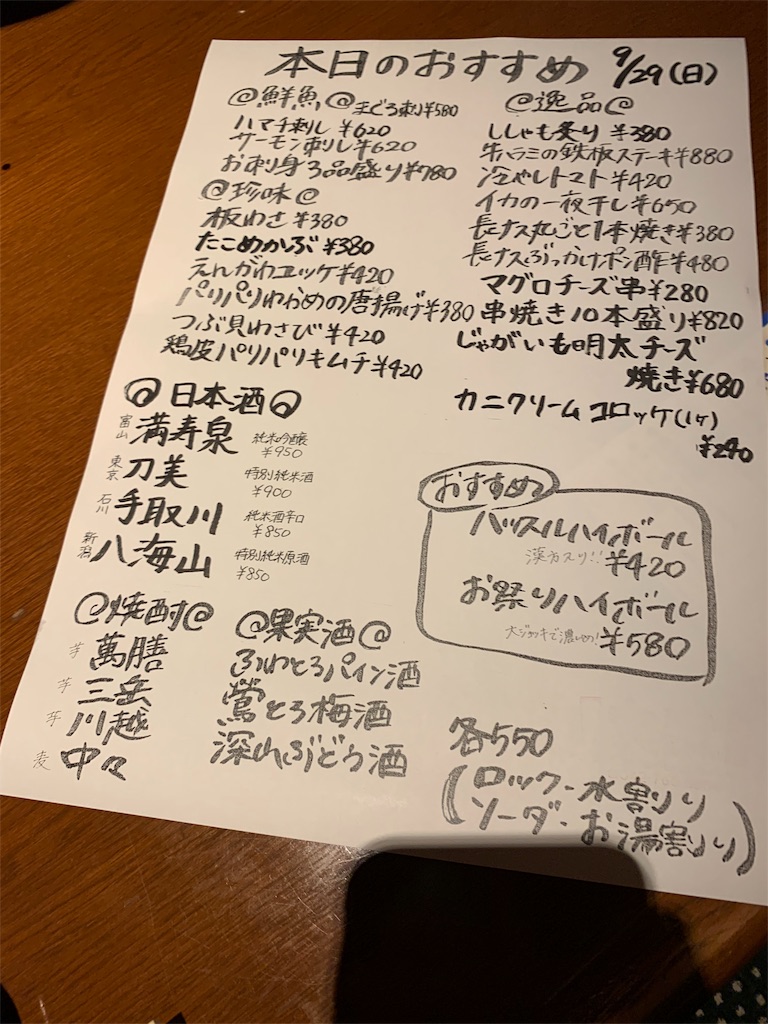 本日のおすすめ 9/29(日)
◎鮮魚◎ まぐろ刺¥580
ハマチ刺し ¥620
サーモン刺し ¥620
お刺身3品盛り¥780
◎珍味◎
板わさ ¥380
たこめかぶ ¥380
えんがわユッケ ¥420
パリパリわかめの唐揚げ¥380
つぶ貝わさび ¥420
鶏皮パリパリキムチ ¥420
◎逸品◎
ししゃも炙り ¥380
牛ハラミの鉄板ステーキ¥880
冷やしトマト ¥420
イカの一夜干し ¥650
長ナス丸ごと1本焼き¥380
長ナスぶっかけポン酢¥480
マグロチーズ串¥280
串焼き10本盛り¥820
じゃがいも明太チーズ
焼き¥680
カニクリームコロッケ(1ヶ)
¥240
◎日本酒◎
富山 満寿泉 純米吟醸 ¥950
東京 刀美 特別純米酒 ¥900
石川 手取川 純米酒辛口 ¥850
新潟 八海山 特別純米原酒 ¥850
おすすめ
ハッスルハイボール
漢方入り!! ¥420
お祭りハイボール
大ジョッキで濃いめ! ¥580
◎焼酎◎
芋 萬膳
芋 三岳
芋 川越
麦 中々
◎果実酒◎
ふわとろパイン酒
鶯とろ梅酒
深山ぶどう酒
各550
(ロック・水割り
ソーダ・お湯割り)